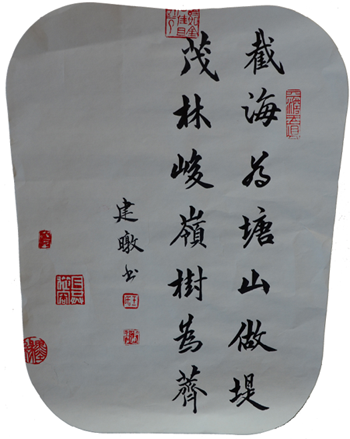 截海为塘山做堤
茂林峻嶺樹為薺
建暾书